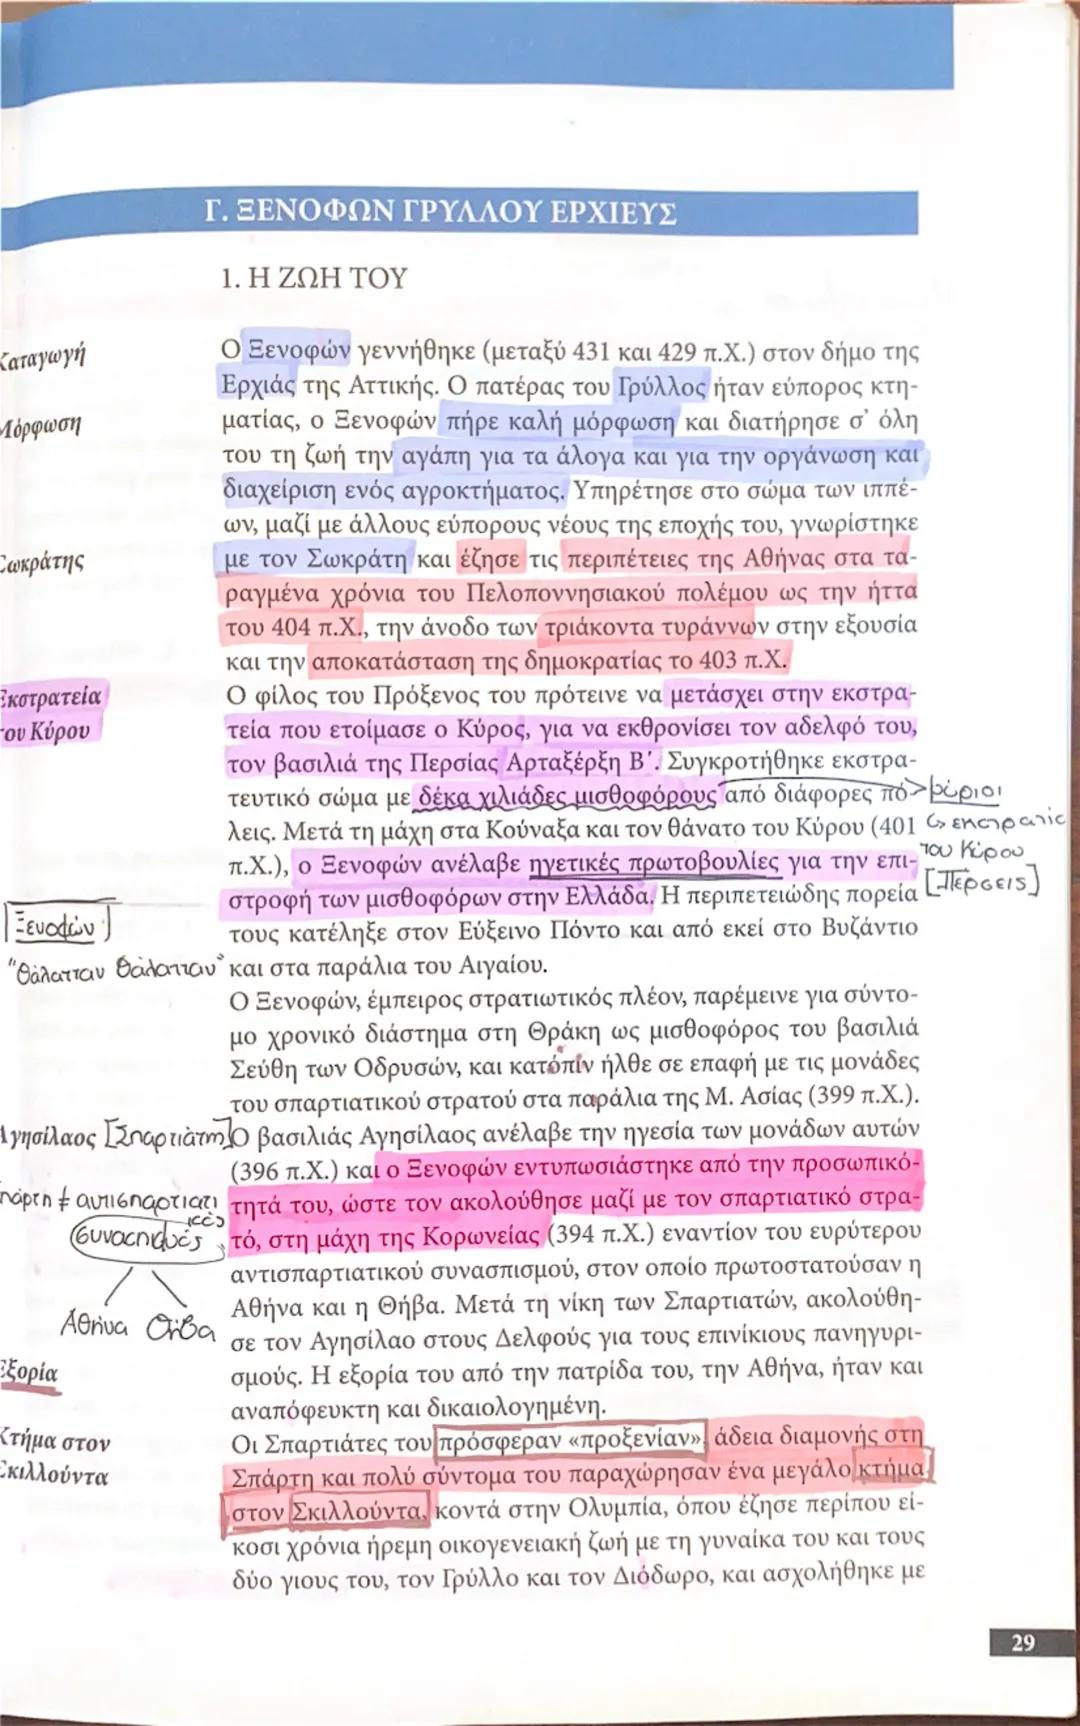 Γ. ΞΕΝΟΦΩΝ ΓΡΥΛΛΟΥ ΕΡΧΙΕΥΣ
1. Η ΖΩΗ ΤΟΥ
Καταγωγή
Ο Ξενοφών γεννήθηκε (μεταξύ 431 και 429 π.Χ.) στον δήμο της
Ερχιάς της Αττικής. Ο πατέρας του Γρύλλος ήταν εύπορος κτη-
Μόρφωση
ματίας, ο Ξενοφών πήρε καλή μόρφωση και διατήρησε σ' όλη
του τη ζωή την αγάπη για τα άλογα και για την οργάνωση και
διαχείριση ενός αγροκτήματος. Υπηρέτησε στο σώμα των ιππέ-
ων, μαζί με άλλους εύπορους νέους της εποχής του, γνωρίστηκε
Σωκράτης
με τον Σωκράτη και έζησε τις περιπέτειες της Αθήνας στα τα-
ραγμένα χρόνια του Πελοποννησιακού πολέμου ως την ήττα
του 404 π.Χ., την άνοδο των τριάκοντα τυράννων στην εξουσία
και την αποκατάσταση της δημοκρατίας το 403 π.Χ.
Εκστρατεία
του Κύρου
Ο φίλος του Πρόξενος του πρότεινε να μετάσχει στην εκστρα-
τεία που ετοίμασε ο Κύρος, για να εκθρονίσει τον αδελφό του,
τον βασιλιά της Περσίας Αρταξέρξη Β΄. Συγκροτήθηκε εκστρα-
τευτικό σώμα με δέκα χιλιάδες μισθοφόρους από διάφορες πό-
λεις. Μετά τη μάχη στα Κούναξα και τον θάνατο του Κύρου (401
π.Χ.), ο Ξενοφών ανέλαβε ηγετικές πρωτοβουλίες για την επι-
στροφή των μισθοφόρων στην Ελλάδα. Η περιπετειώδης πορεία
τους κατέληξε στον Εύξεινο Πόντο και από εκεί στο Βυζάντιο
και στα παράλια του Αιγαίου.
μύριοι
↳ εκστρατεία
του Κύρου
[Πέρσεις]
Ξενοφών
"Θάλατταν θάλατταν"
Ο Ξενοφών, έμπειρος στρατιωτικός πλέον, παρέμεινε για σύντο-
μο χρονικό διάστημα στη Θράκη ως μισθοφόρος του βασιλιά
Σεύθη των Οδρυσών, και κατόπιν ήλθε σε επαφή με τις μονάδες
του σπαρτιατικού στρατού στα παράλια της Μ. Ασίας (399 π.Χ.).
Αγησίλαος [Σπαρτιάτη]
Ο βασιλιάς Αγησίλαος ανέλαβε την ηγεσία των μονάδων αυτών
(396 π.Χ.) και ο Ξενοφών εντυπωσιάστηκε από την προσωπικό-
τητά του, ώστε τον ακολούθησε μαζί με τον σπαρτιατικό στρα-
τό, στη μάχη της Κορωνείας (394 π.Χ.) εναντίον του ευρύτερου
αντισπαρτιατικού συνασπισμού, στον οποίο πρωτοστατούσαν η
Αθήνα και η Θήβα. Μετά τη νίκη των Σπαρτιατών, ακολούθη-
σε τον Αγησίλαο στους Δελφούς για τους επινίκιους πανηγυρι-
σμούς. Η εξορία του από την πατρίδα του, την Αθήνα, ήταν και
αναπόφευκτη και δικαιολογημένη.
Σπάρτη ≠
Αθήνα Θήβα
Εξορία
Κτήμα στον
Σκιλλούντα
Οι Σπαρτιάτες του πρόσφεραν «προξενίαν», άδεια διαμονής στη
Σπάρτη και πολύ σύντομα του παραχώρησαν ένα μεγάλο κτήμα
στον Σκιλλούντα, κοντά στην Ολυμπία, όπου έζησε περίπου εί-
κοσι χρόνια ήρεμη οικογενειακή ζωή με τη γυναίκα του και τους
δύο γιους του, τον Γρύλλο και τον Διόδωρο, και ασχολήθηκε με
29